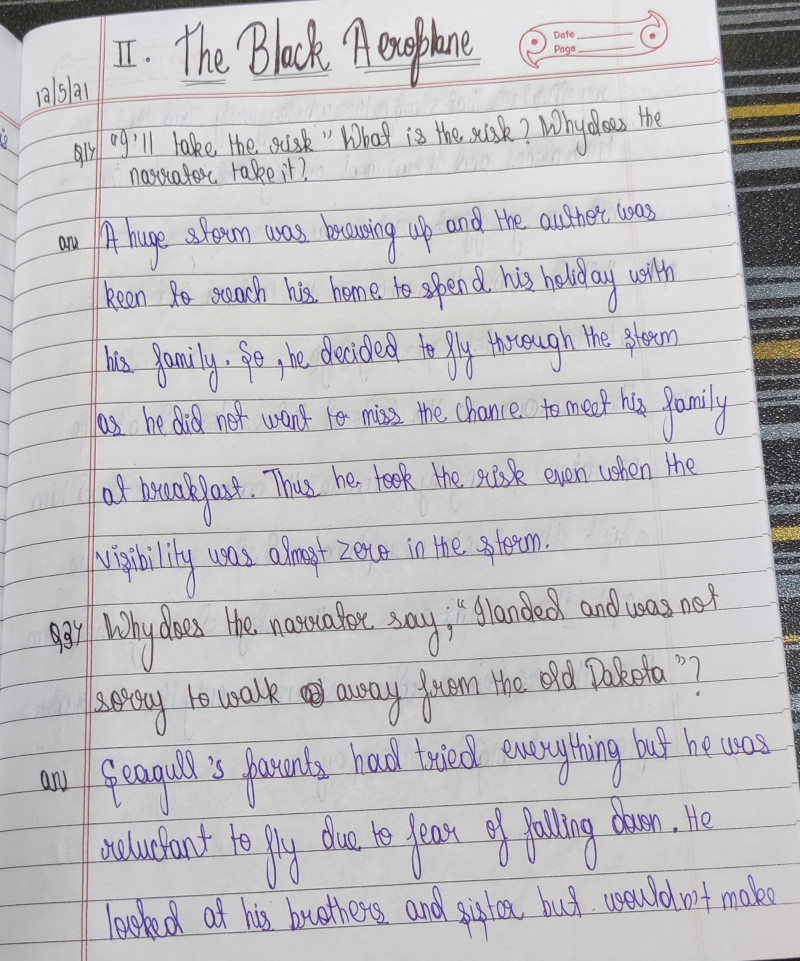 II. The Black Aeroplane
Date
Page
12/5/21
Q1y "I'll take the risk" What is the risk? Why does the
narrator take it?
ans A huge storm was brewing up and the author was
keen to reach his home to spend his holiday with
his family. So, he decided to fly through the storm
as he did not want to miss the chance to meet his family
at breakfast. Thus he took the risk even when the
visibility was almost zero in the storm.
Why does the narrator say; "I landed and was not
sorry to walk away from the old Dakota"?
ans Seagull's parents had tried everything but he was
reluctant to fly due to fear of falling down. He
looked at his brothers and sister but wouldn't make